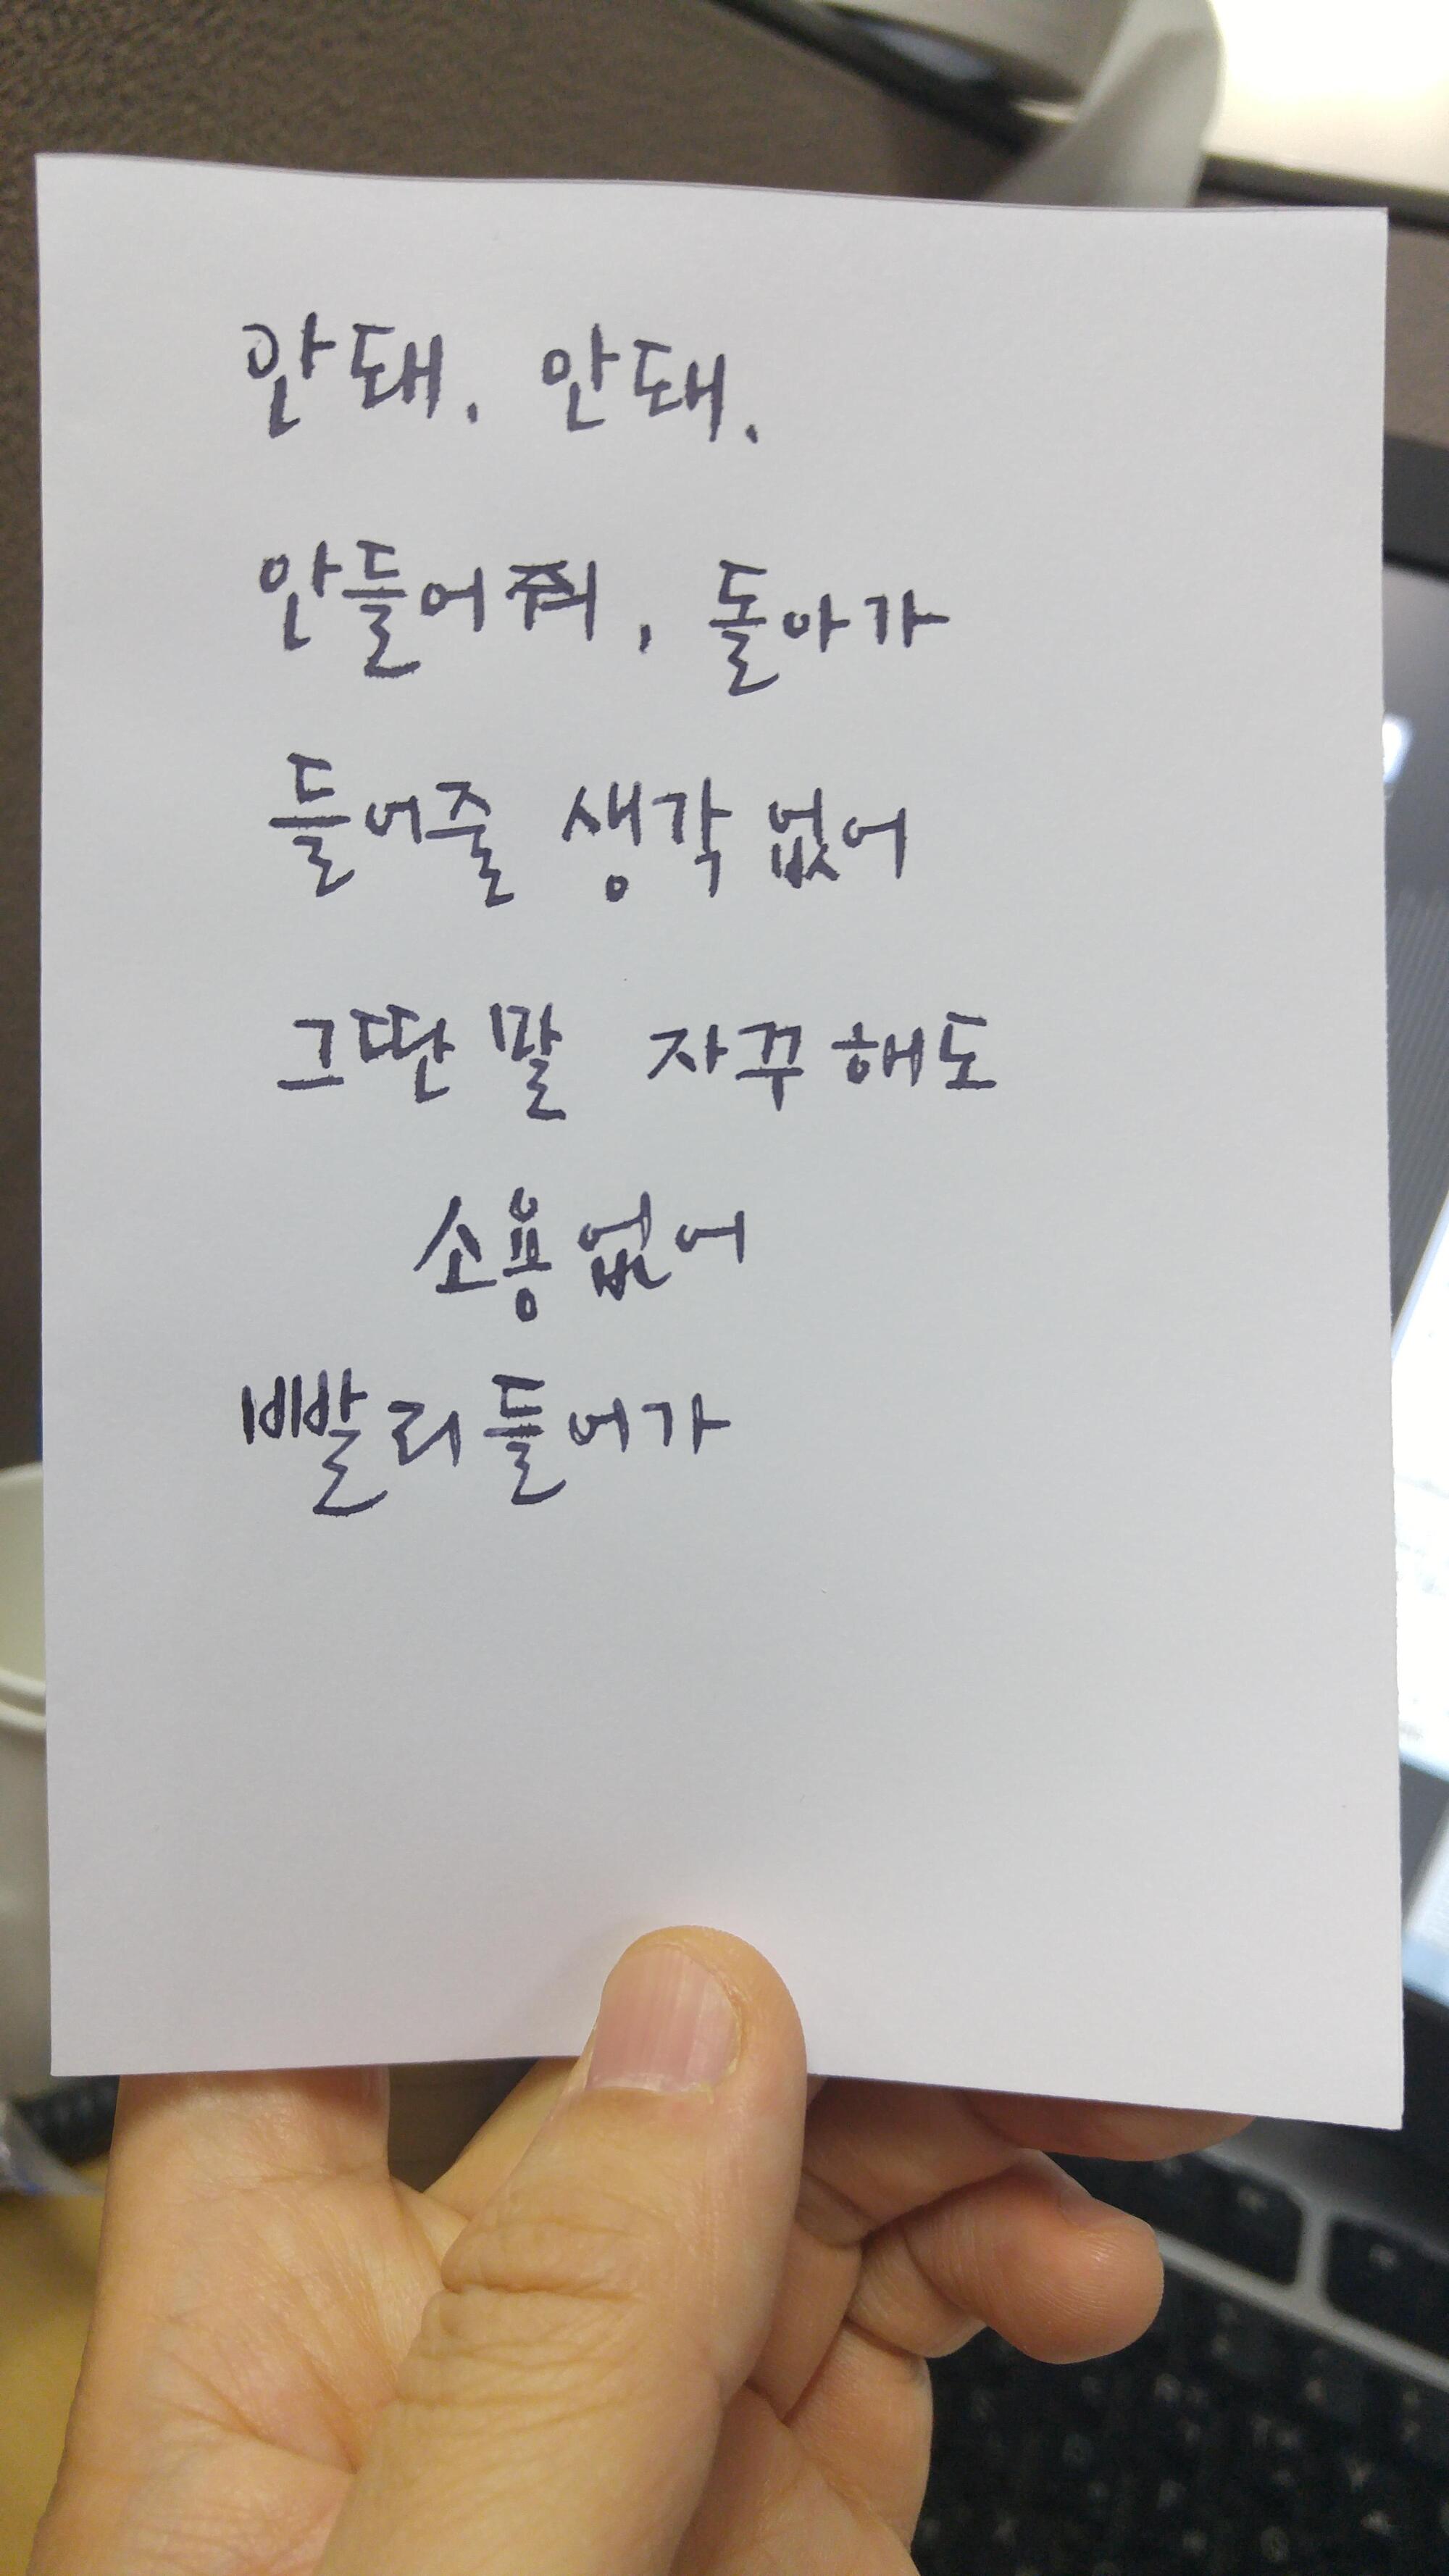 안돼. 안돼.
안들어줘, 돌아가
들어줄 생각없어
그딴말 자꾸해도
소용없어
빨리들어가